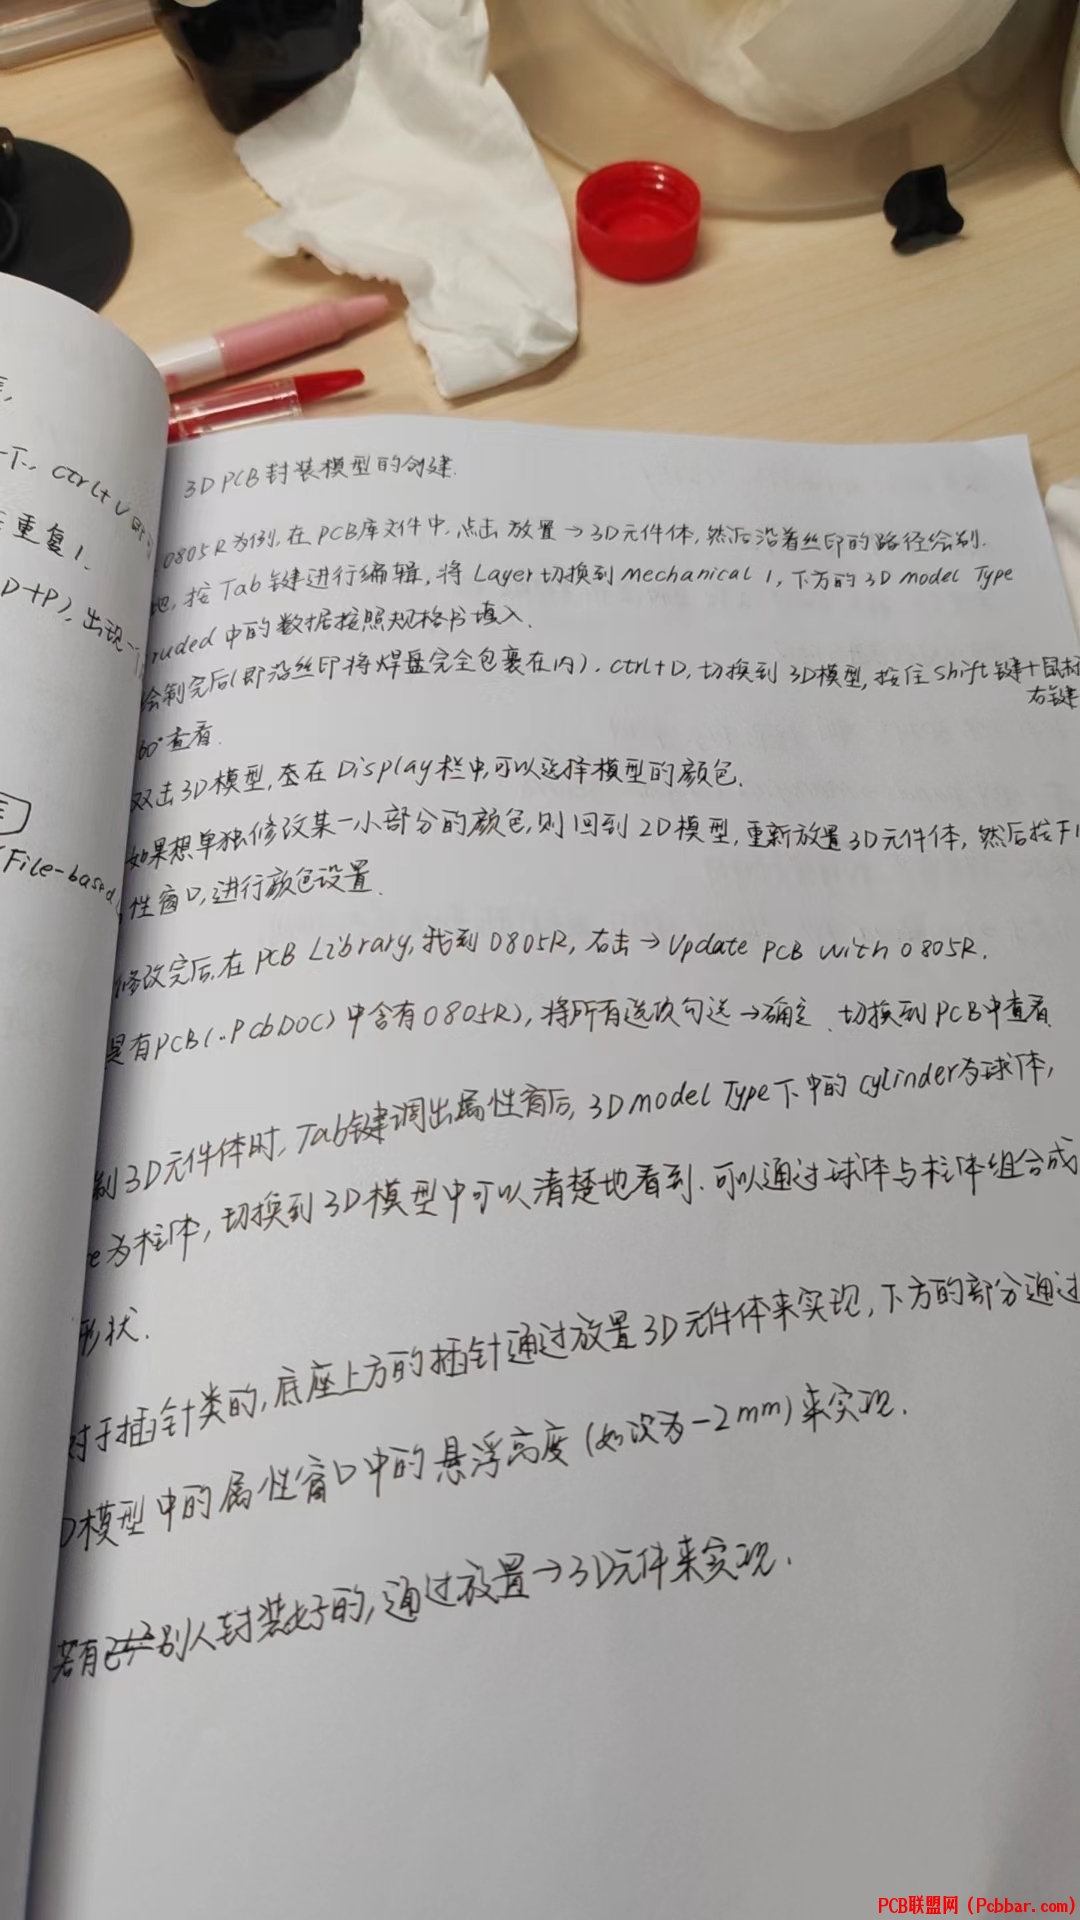 下, ctrl+V
重复1.
D+P), 出现一
File-based
3D PCB封装模型的创建.
0805R为例, 在PCB库文件中, 点击 放置→3D元件体, 然后沿着丝印的路径绘制.
, 按Tab键进行编辑, 将Layer切换到Mechanical 1, 下方的3D model Type
ruded 中的数据按照规格书填入.
绘制完后(即沿丝印将焊盘完全包裹在内). ctrl+D, 切换到3D模型, 按住Shift键+鼠标
右键
60°查看.
双击3D模型, 在Display栏中,可以选择模型的颜色.
如果想单独修改某一小部分的颜色, 则回到2D模型, 重新放置3D元件体, 然后按F1
性窗口, 进行颜色设置.
修改完后, 在PCB Library, 找到0805R, 右击→Update PCB with 0805R.
是有PCB(.PcbDOC)中含有0805R), 将所有选项勾选→确定. 切换到PCB中查看.
制3D元件体时, Tab键调出属性窗后, 3D model Type下中的cylinder为球体,
re为柱体, 切换到3D模型中可以清楚地看到. 可以通过球体与柱体组合成
形状.
对于插针类的, 底座上方的插针通过放置3D元件体来实现, 下方的部分通过
D模型中的属性窗口中的悬浮高度(如次为-2mm)来实现.
若有别人封装好的, 通过放置→3D元件来实现.
PCB联盟网 (Pcbbar.com)